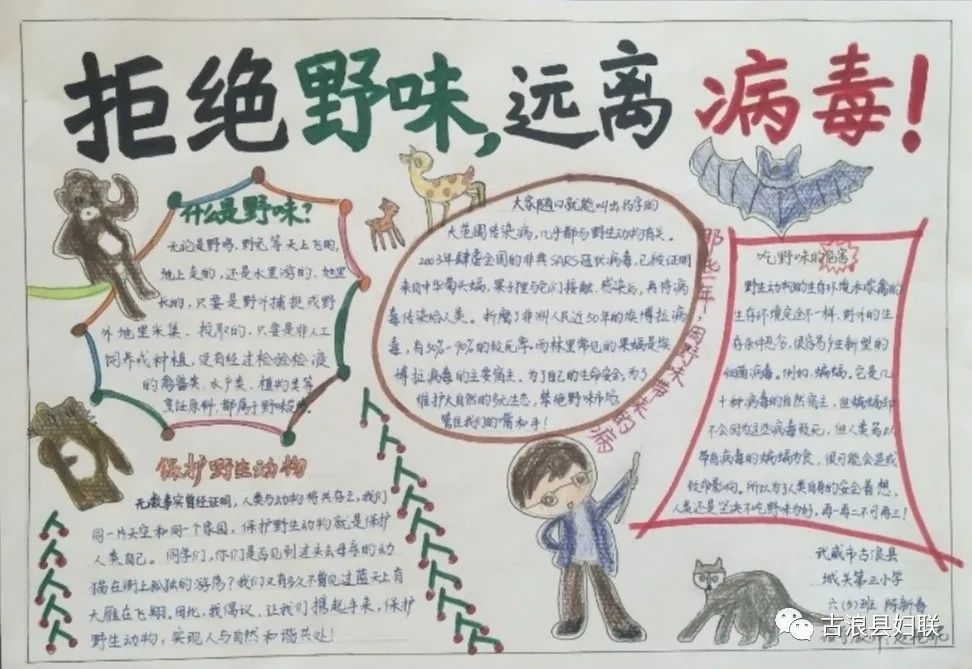 拒绝野味,远离病毒!
什么是野味?
无论是野鸡、野兔等天上飞的,
地上走的,还是水里游的、地里
长的,只要是野外捕捉或野
外地里采集、捞取的,只要是非人工
饲养或种植,没有经过检验检疫
的禽兽类、水产类、植物类等
烹饪原料,都属于野味范畴。
大家随口就能叫出名字的
大范围传染病,几乎都与野生动物有关。
2003年肆虐全国的非典SARS冠状病毒,已被证明
来自中华菊头蝠,果子狸与它们接触、感染后,再将病
毒传染给人类。折磨了非洲人民近50年的埃博拉病
毒,有50%-90%的致死率,雨林里常见的果蝠是埃
博拉病毒的主要宿主。为了自己的生命安全,为了
维护大自然的多元生态,禁绝野味市场
管住我们的嘴和手!
那些年,因野味带来的病
吃野味的危害
野生动物的生存环境和家禽的
生存环境完全不一样,野外的生
存条件恶劣,很容易产生新型的
细菌病毒。例如,蝙蝠,它是几
十种病毒的自然宿主,但蝙蝠却
不会因为这些病毒致死,但人类若以
带有病毒的蝙蝠为食,很可能会造成
致命影响。所以为了人类自身的安全着想,
人类还是坚决不吃野味为好,再一再二不可再三!
保护野生动物
无数事实曾经证明,人类与动物将共存亡,我们
同一片天空和同一个家园,保护野生动物就是保护
人类自己。同学们,你们是否见到过失去母亲的幼
猫在街上孤独的游荡?我们又有多久不曾见过蓝天上有
大雁在飞翔。因此,我倡议,让我们携起手来,保护
野生动物,实现人与自然和谐共处!
武威市古浪县
城关第三小学
六(5)班 陈新春
古浪县妇联